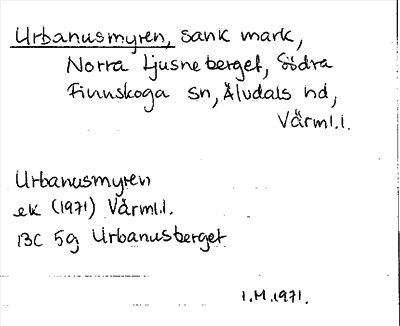 Urbanusmyren, sank mark,
Norra Ljusneberget, Södra
Finnskoga sn, Älvdals hd,
Värml.l.
Urbanusmyren
ek (1971) Värml.l.
13C 5g Urbanusberget
I.M.1971.